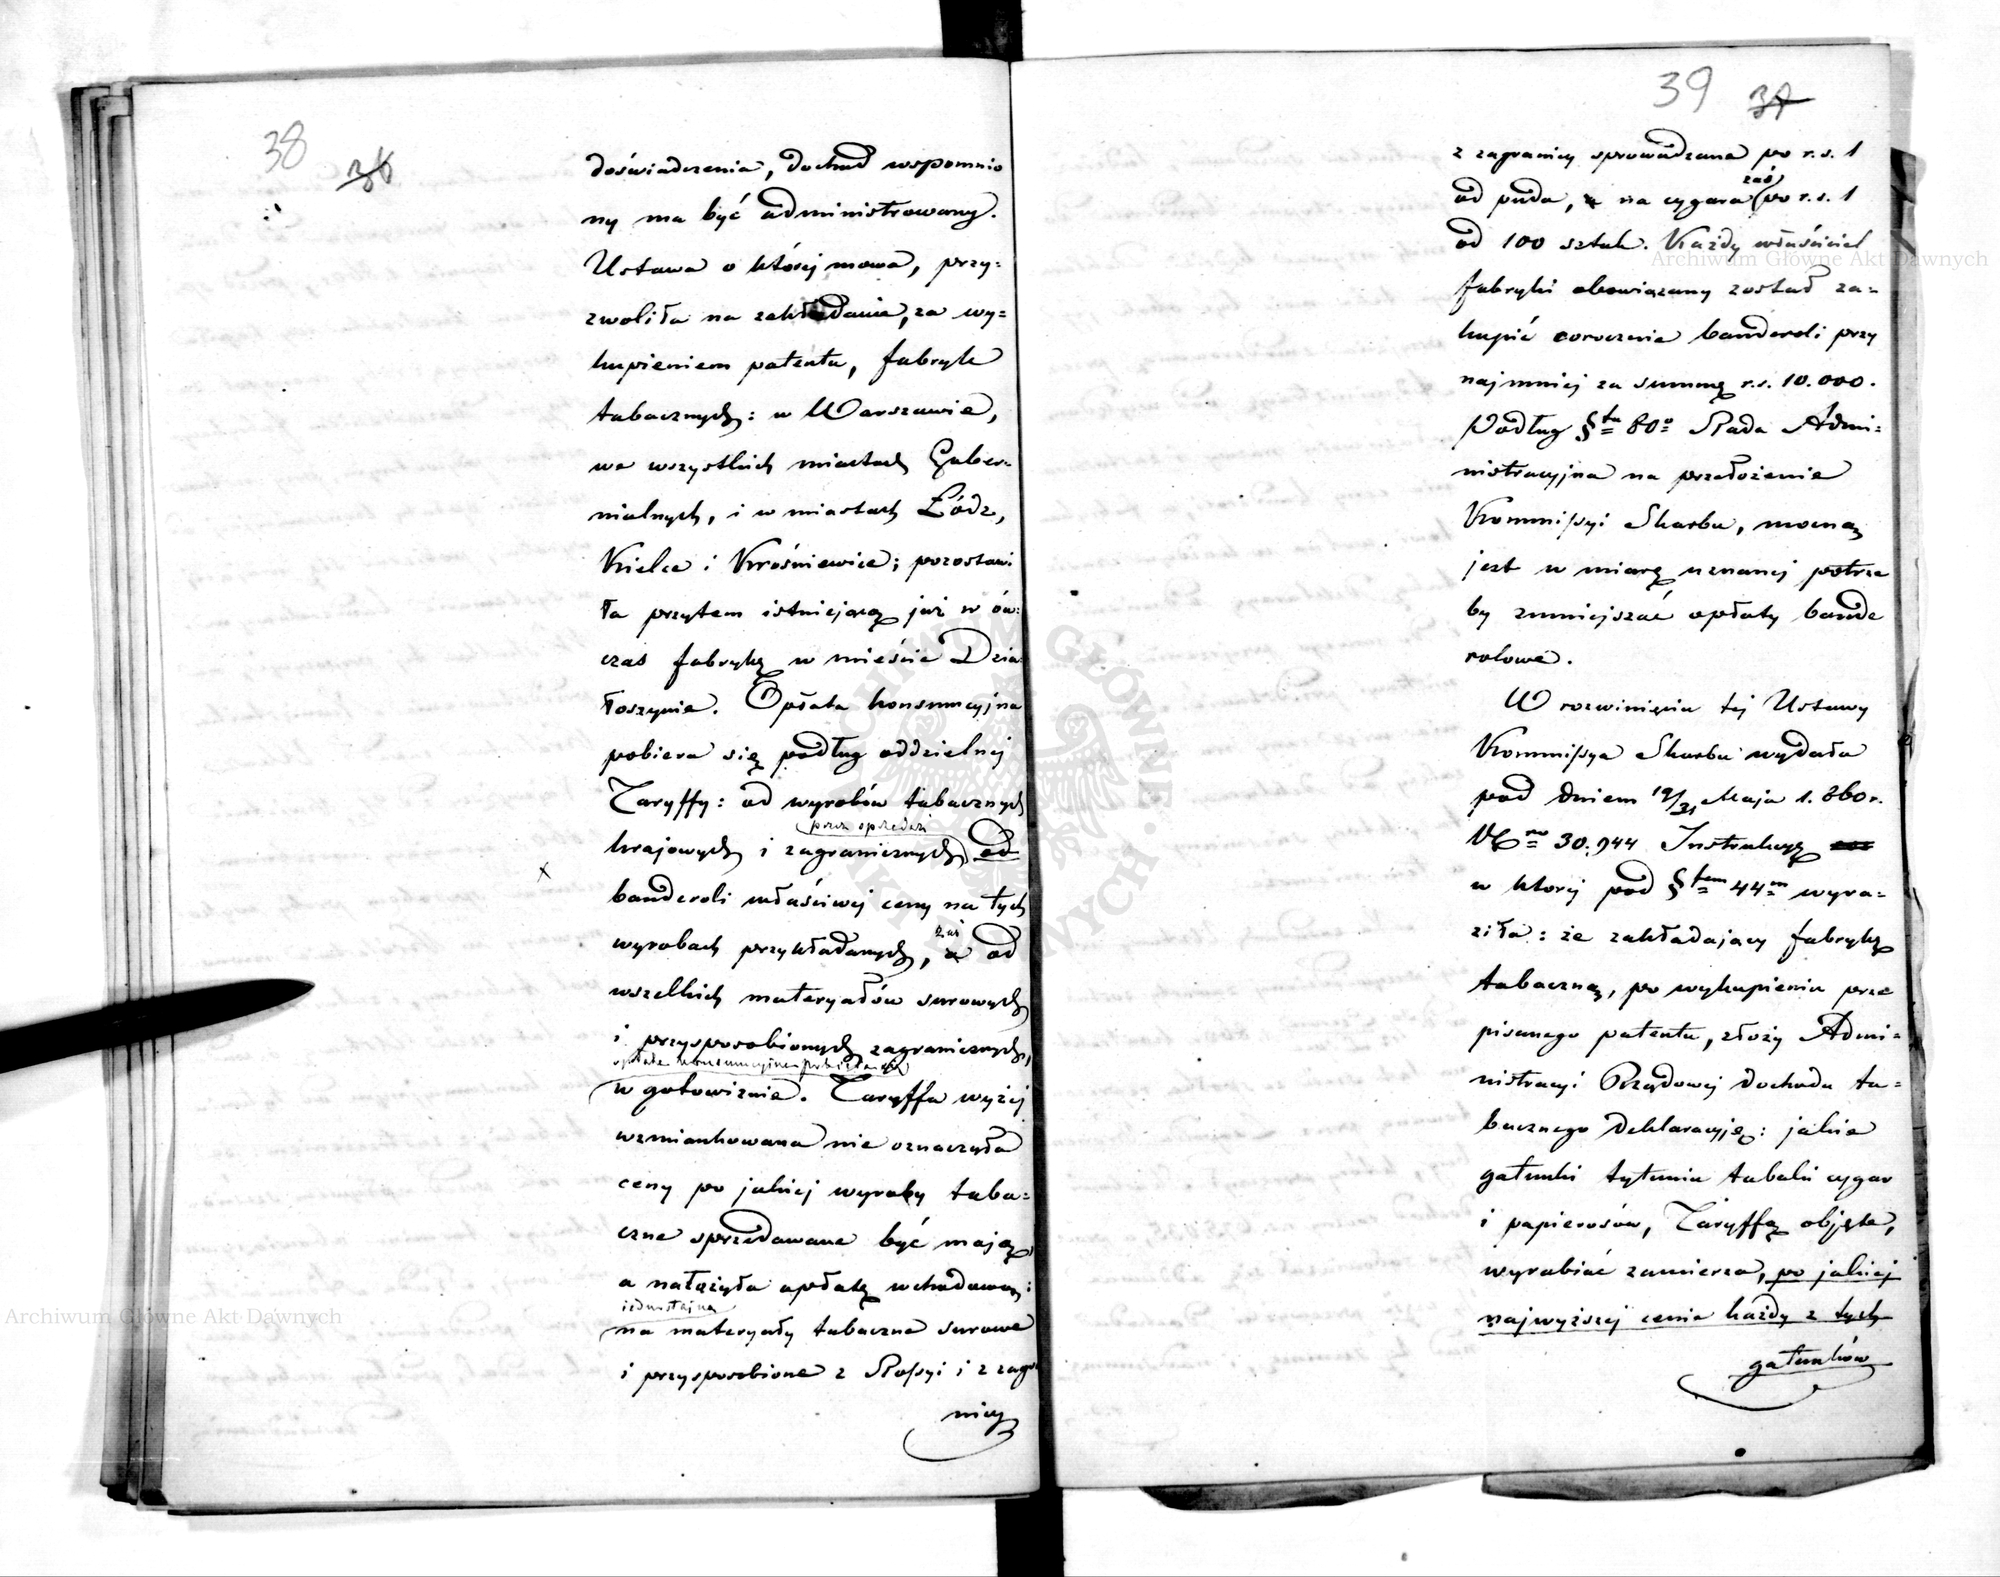 38
36
doświadczenia, dochód wspomnio
ny ma być administrowany.
Ustawa o któréj mowa, przy=
zwoliła na zakładanie, za wy=
kupieniem patentu, fabryk
tabacznych: w Warszawie,
we wszystkich miastach Guber=
nialnych, i w miastach Łódz,
Kielce i Krośniewice; pozostawi
ła przytem istniejącą już w ów=
czas fabrykę w mieście Dzia
łoszynie. Opłata konsumcyjna
pobiera się podług oddzielnej
Taryffy: od wyrobów tabacznych
przez sprzedaż
krajowych i zagranicznych od
banderoli właściwej ceny na tych
wyrobach przykładanych,
zaś
a od
wszelkich materyałów surowych
i przysposobionych zagranicznych,
opłata konsumcyjna pobieraną
w gotowiznie. Taryffa wyżej
wzmiankowana nie oznaczyła
ceny po jakiej wyroby taba=
czne sprzedawane być mają,
a nałożyła opłatę wchodową:
jednostajną
na materyały tabaczne surowe
i przysposobione z Rossyi i z zagra
nicy
39
37
z zagranicy sprowadzane po r.s. 1
od puda, a na cygara
zaś
po r.s. 1
od 100 sztuk. Każdy właściciel
fabryki obowiązany został za=
kupić corocznie banderoli przy
najmniej za summę r.s. 10.000.
Podług §fu 80o Rada Admi=
nistracyjna na przełożenie
Kommissyi Skarbu, mocną
jest w miarę uznanej potrze
by zmniejszać opłaty bande
rolowe.
W rozwinięciu téj Ustawy
Kommissya Skarbu wydała
pod dniem 19/31 Maja 1.860 r.
No 30.944 Instrukcyę
w ktorej pod §fem 44m wyra=
ziła: że zakładający fabrykę
tabaczną, po wykupieniu prze
pisanego patentu, złoży Admi=
nistracyi Rządowej dochodu ta=
bacznego deklaracyję: jakie
gatunki tytuniu tabaki cygar
i papierosów, Taryffą objęte,
wyrabiać zamierza, po jakiej
najwyższej cenie każdy z tych
gatunków
Archiwum Główne Akt Dawnych
Archiwum Główne Akt Dawnych
ARCHIWUM GŁÓWNE AKT DAWNYCH